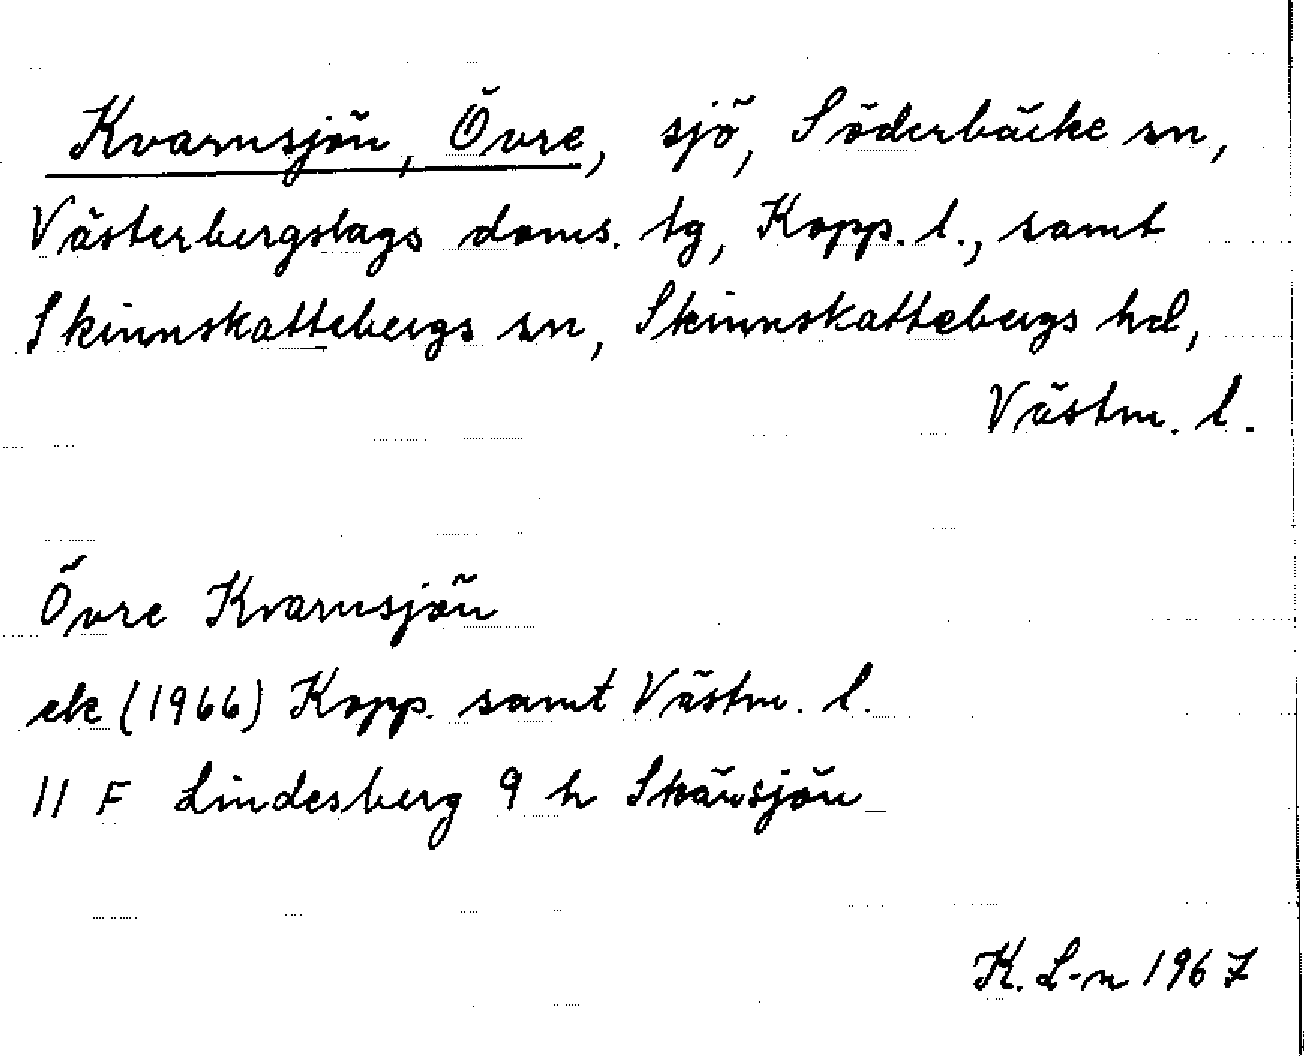 Kvarnsjön, Övre, sjö, Söderbäcke sn,
Västerbergslags doms. tg, Kopp. l., samt
Skinnskattebergs sn, Skinnskattebergs hd,
Västm. l.
Övre Kvarnsjön
ek (1966) Kopp. samt Västm. l.
11 F Lindesberg 9 h Skärsjön
K. L-n 1967